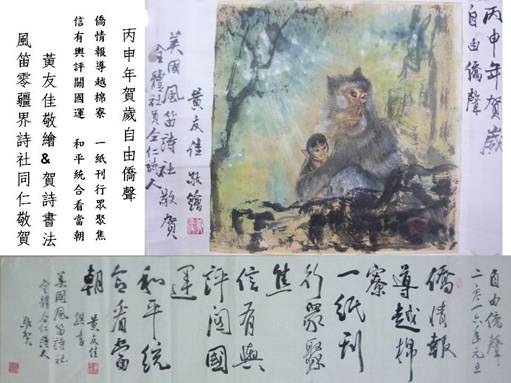 丙申年賀歲自由僑聲
僑情報導越棉寮 一紙刊行眾聚焦
信有輿評關國運 和平統合看當朝
黃友佳敬繪&賀詩書法
風笛零疆界詩社同仁敬賀
丙申年賀歲
自由僑聲
黃友佳敬繪
美國風笛詩社敬賀
自由僑聲
二零一六年元旦
僑情報
導越棉
寮
一紙刊
行眾聚
焦
信有輿
評関國
運
和平統
合看當
朝
黃友佳
撰書
美國風笛詩社